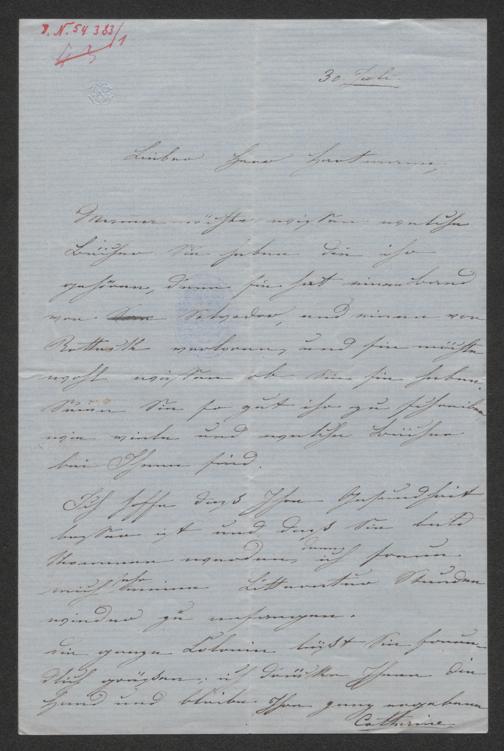 I. N. 54 383/1
30 Juli.
Lieber Herr Hartmann,
Mamma möchte wissen welche
Bücher Sie haben die ihr
gehören, denn sie hat einen Band
von Salvador, und einen von
Rotteck verloren, und sie möchte
wohl wissen ob Sie sie haben.
Seien Sie so gut ihr zu schreiben
wie viele und welche Bücher
bei Ihnen sind.
Ich hoffe dass Ihre Gesundheit
besser ist und dass Sie bald
kommen werden, denn ich freue
mich sehr meine Litteratur Stunden
wieder zu anfangen.
Die ganze Colonie lässt Sie freund
lich grüssen; ich drücke Ihnen die
Hand und bleibe Ihre ganz ergebene
Catherine